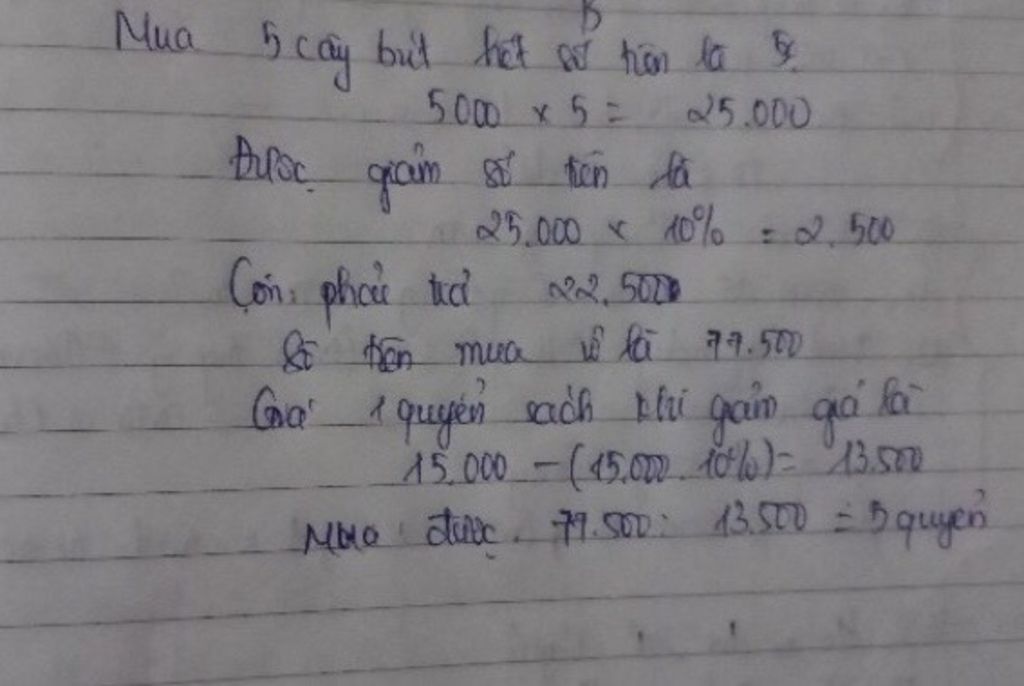 Mua 5 cây bút hết số tiền là
5000 x 5 = 25.000
Được giảm số tiền là
25.000 x 10% = 2.500
Còn phải trả 22.500
Số tiền mua vở là 77.500
Giá 1 quyển sách khi giảm giá là
15.000 - (15.000. 10%) = 13.500
Mua được. 77.500: 13.500 = 5 quyển